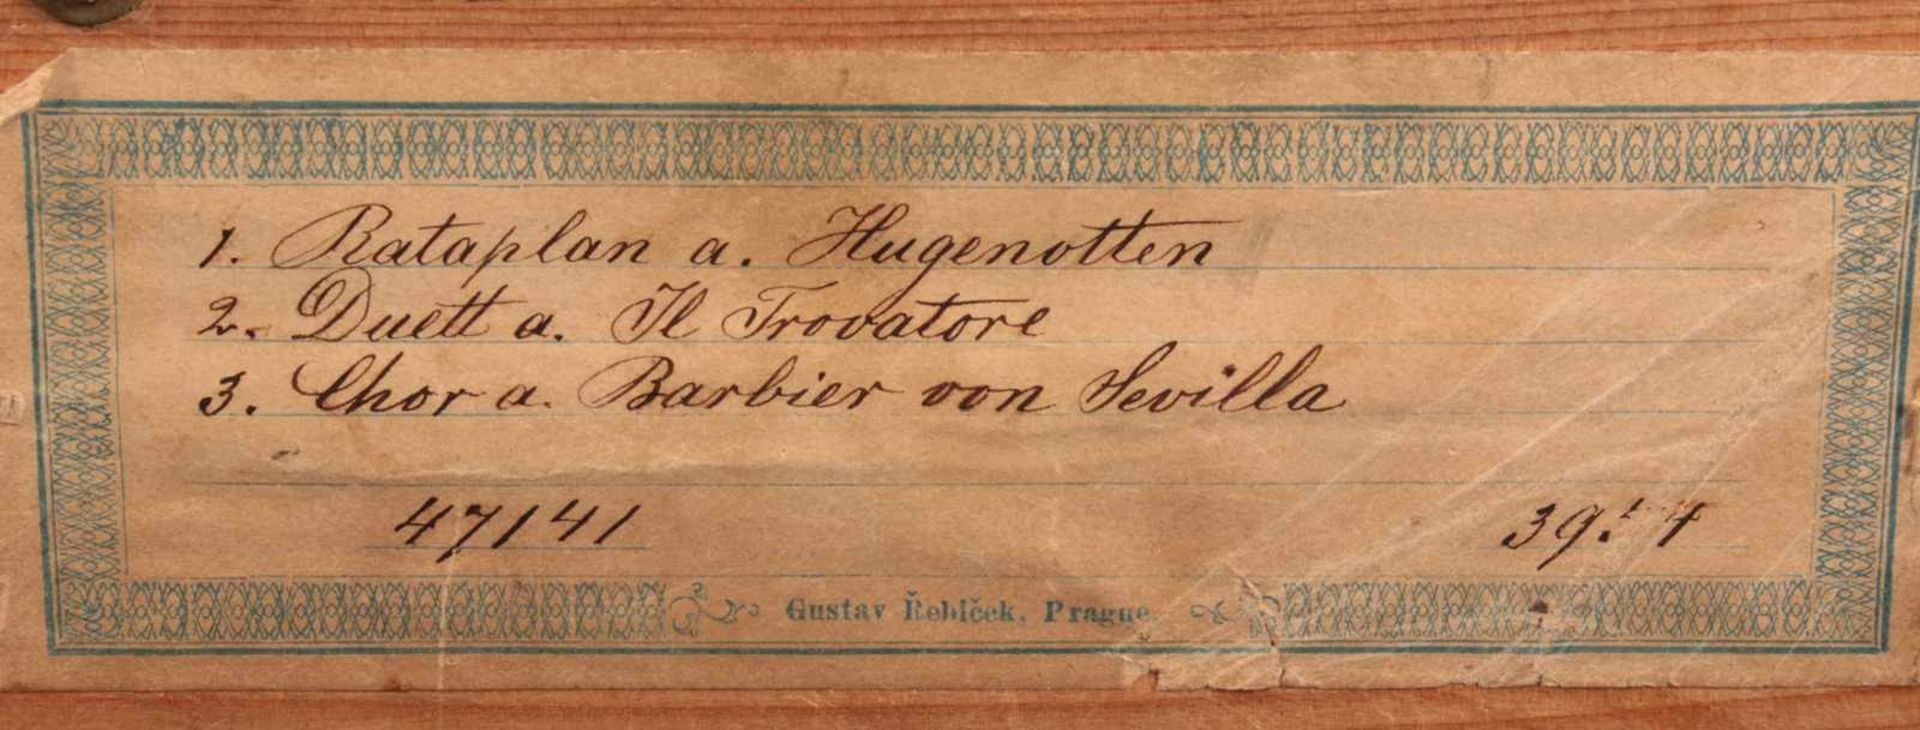 1. Rataplan a. Hugenotten
2. Duett a. Il Trovatore
3. Chor a. Barbier von Sevilla
47141
Gustav Řebíček, Prague